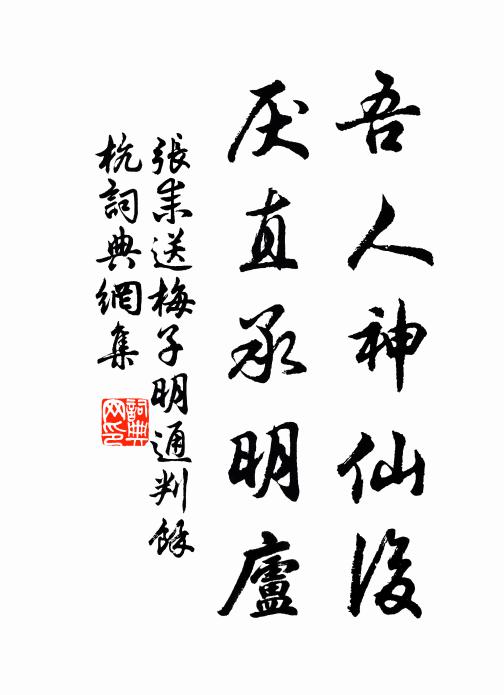 吾人神仙後
厌直承明廬
張耒送梅子明通判餘
杭詞典網集
詞典
网印